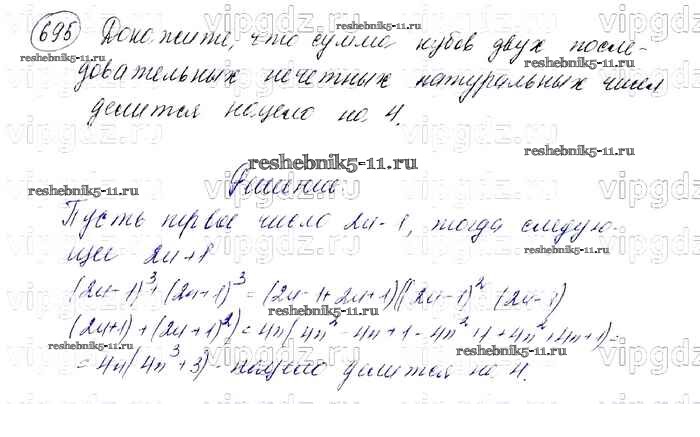 695 Докажите, что сумма кубов двух после-
довательных нечетных натуральных чисел
делится нацело на 4.
Решение:
Пусть первое число 2n-1, тогда следую-
щее 2n+1
(2n-1)³+(2n+1)³=(2n-1+2n+1)((2n-1)²-(2n-1)
(2n+1)+(2n+1)²)=4n(4n²-4n+1-4n²+1+4n²+4n+1)=
=4n(4n³+3)-нацело делится на 4.
reshebnik5-11.ru
vipgdz.ru